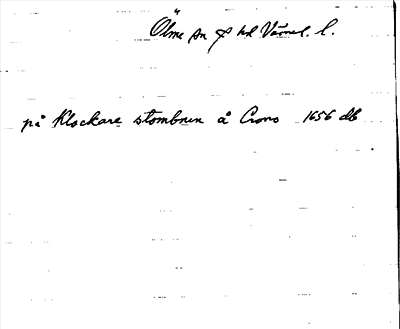 Ölme sn o hd Värml. l.
på Klockare stombnen å Crono 1656 db